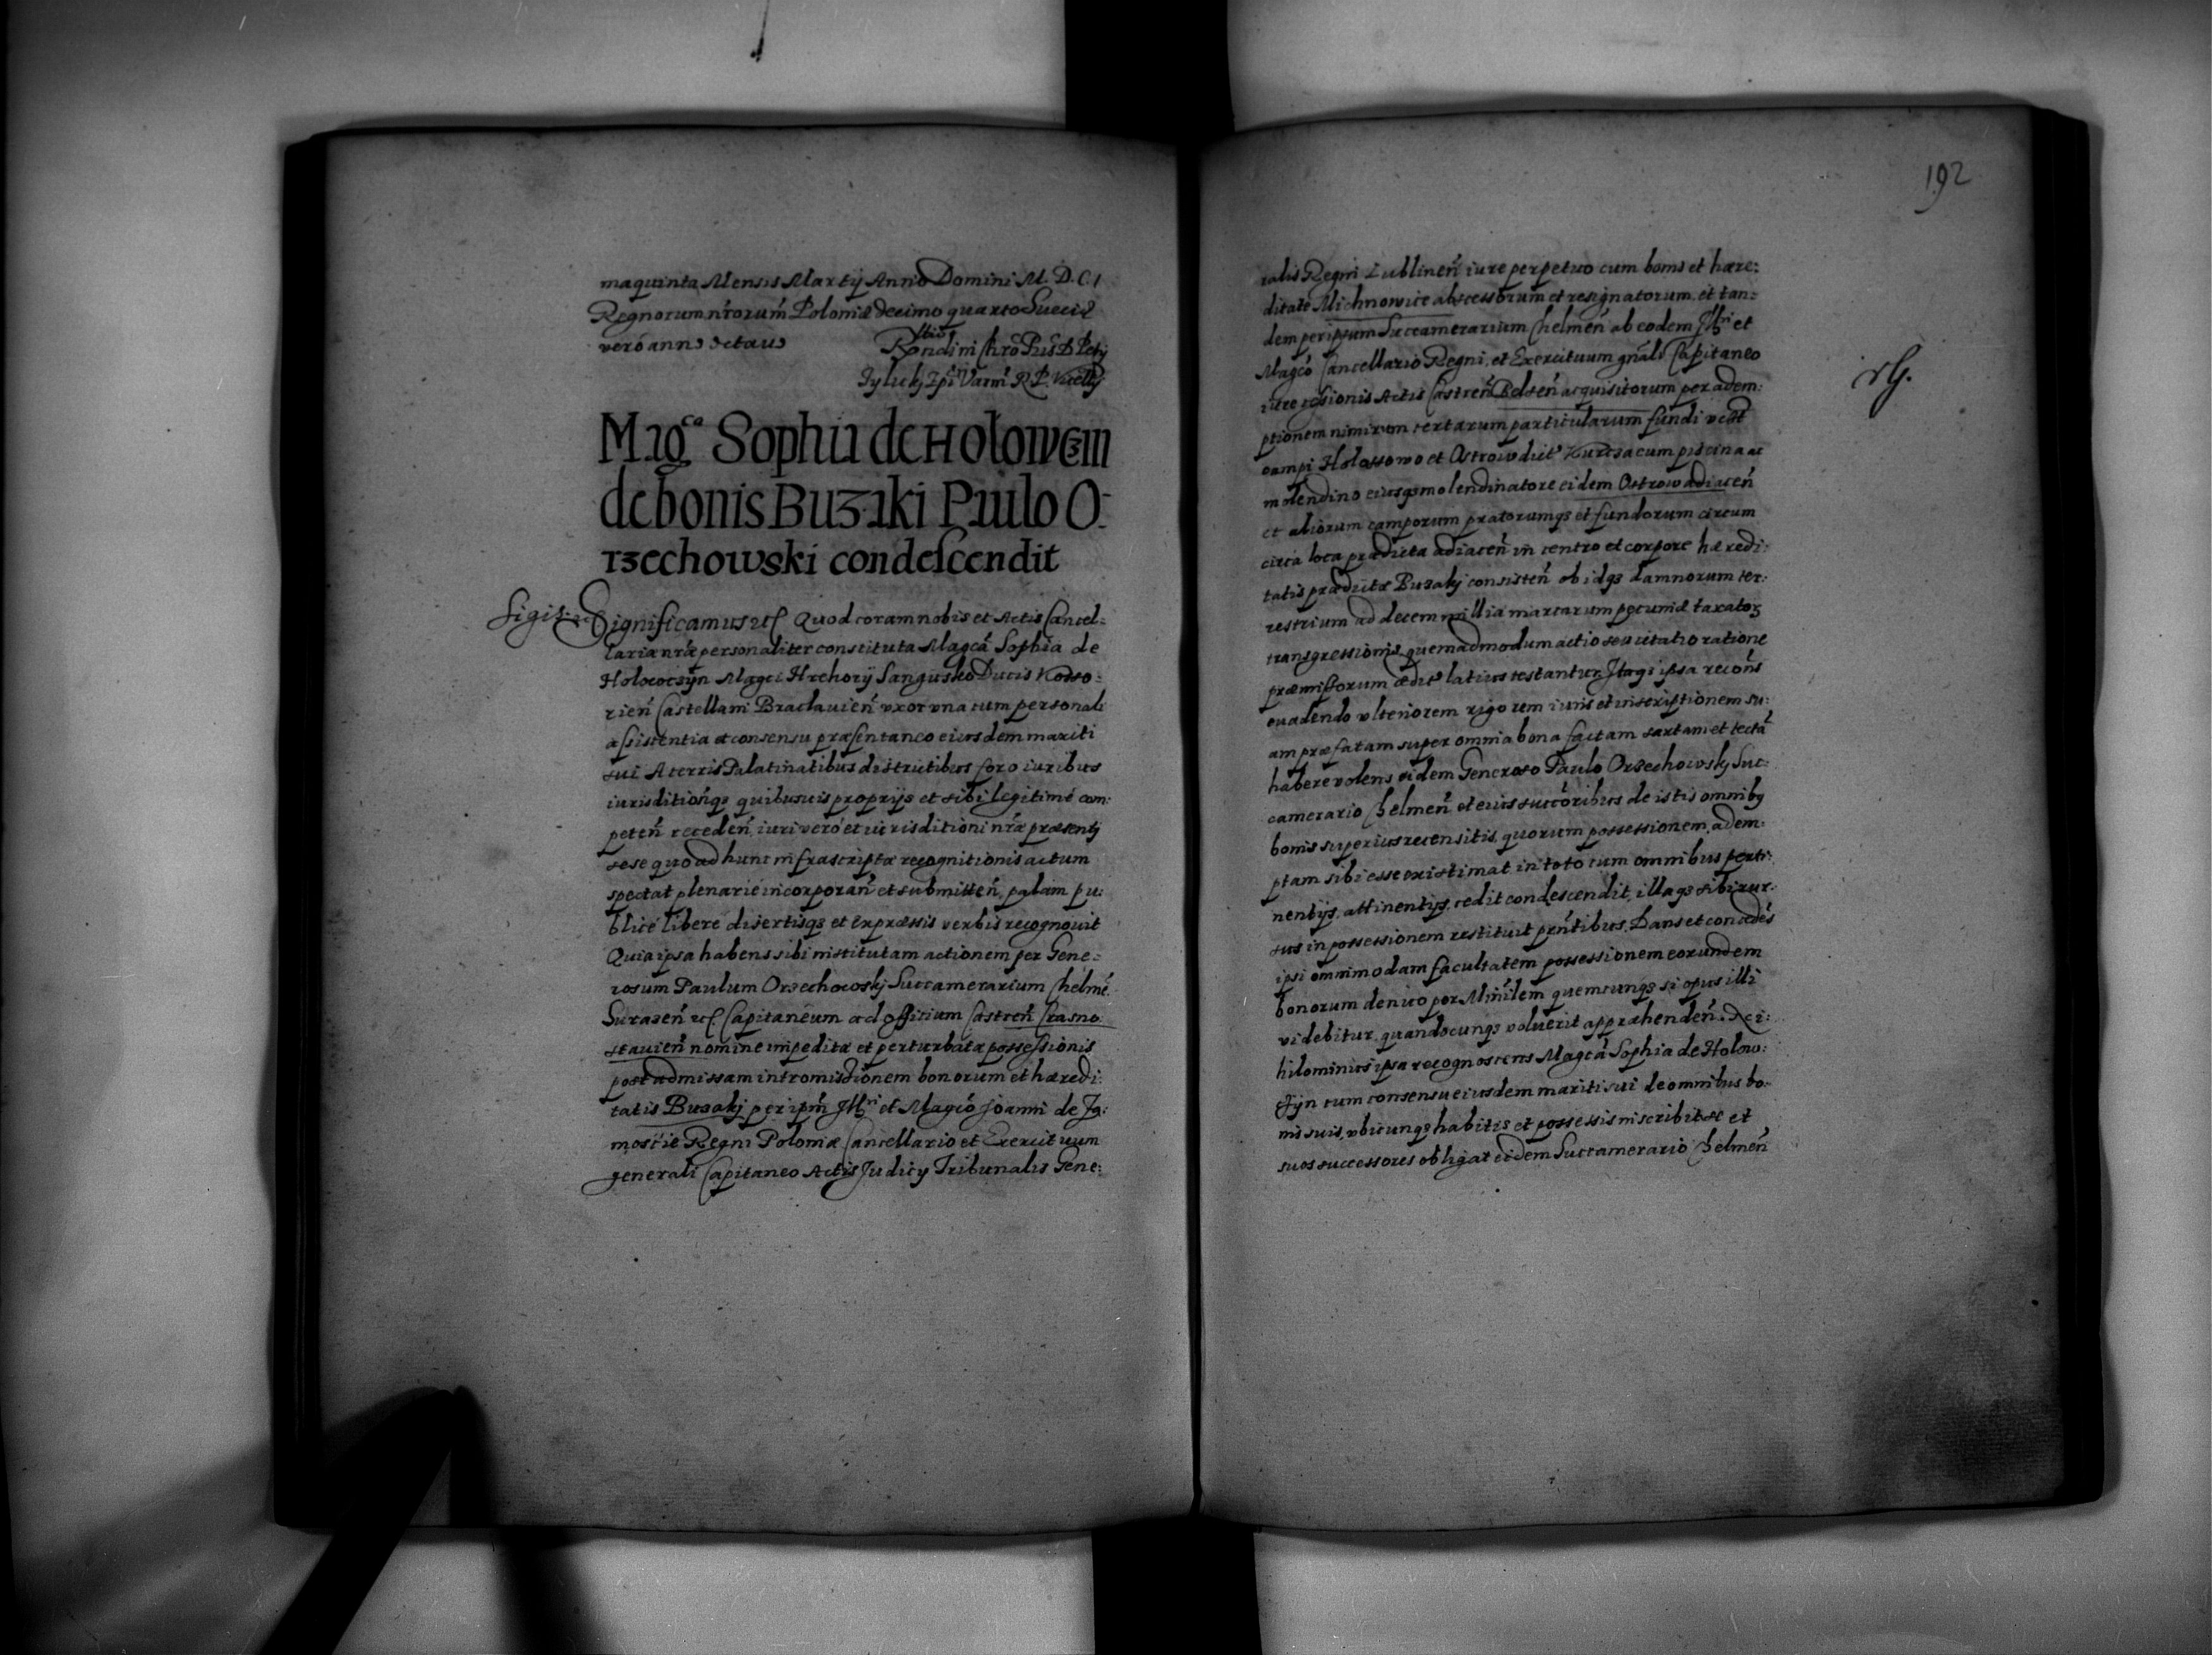 maquinta Mensis Martij Anno Domini M. D. C. I
Regnorum nr̃orum Poloniæ decimo quarto Sueciæ
veró anno octauo
Magca Sophia de Holowczin
de bonis Buzaki Paulo O-
rzechowski condescendit
Significamus etc Quod coram nobis et Actis Cancel=
lariæ nr̃æ personaliter constituta Magcã Sophia de
Holowczÿn Magci Hrehorÿ Sanguszko Ducis Kosso=
rień Castellani Bracłauień vxor vna cum personali
assistentia et consensu præsentaneo eiusdem mariti
sui A terris Palatinatibus districtibus foro iuribus
iurisditionq3 quibusuis proprijs et sibi legitimé com:
peteń receden, iuri veró et iurisditioni nr̃æ præsentj
sese quo ad hunc infrascriptæ recognitionis actum
spectat plenarié incorporań et submitteń, palam pu:
blicé libere disertisq3 et expræssis verbis recognouit
Quia ipsa habens sibi institutam actionem per Gene=
rosum Paulum Orzechowskj Succamerarium Chelmé.
Surazeń etc Capitaneum ad officium Castreń Crasno
stauień nomine impeditæ et perturbatæ possessionis
post admissam intromissionem bonorum et hæredi:
tatis Buzakj per ipm̃ Jllri et Magcó Joanni de Za:
moscie Regni Poloniæ Cancellario et Exercituum
generali Capitaneo Actis Judicÿ Tribunalis Gene:
192
ralis Regni Lublineń iure perpetuo cum bonis et hære:
ditate Michnowice abscessorum et resignatorum, et tan=
dem per ipsum Succamerarium Chelmeń ab eodem Jllri et
Magcó Cancellario Regni, et Exercituum gnãli Capitaneo
iure cessionis Actis Castreń Belzeń acquisitorum per adem:
ptionem nimirum certarum particularum fundi
campi Holossowo et Ostrow dict Kurcza cum piscina ac
molendino eiusq3 molendinatore eidem Ostrow adiaceń
et aliorum camporum pratorumq3 et fundorum circum
circa loca prædicta adiaceń in centro et corpore hæredi:
tatis prædictæ Buzakj consisteń ob idq3 damnorum ter:
restrium ad decem millia marcarum pecuniæ taxator
transgressionis, quemadmodum actio seu citatio ratione
præmissorum ædit latius testantur. Itaq3 ipsa recońs
euadendo vlteriorem rigorem iuris et inscriptionem su:
am præfatam super omnia bona factam sartam et tectã
habere volens eidem Generoso Paulo Orzechowskj Suc=
camerario Chelmeń et eius succoribus de istis omnibus
bonis superius recensitis, quorum possessionem adem:
ptam sibi esse existimat in toto cum omnibus perti:
nentijs, attinentijs, cedit condescendit, illaq3 sibi rur:
sus in possessionem restituit pr̃ntibus. Dans et concedẽs
ipsi omnimodam facultatem possessionem eorundem
bonorum denuo per Minilem quemcunq3 si opus illi
videbitur, quandocunq3 voluerit appræhendeń. Ni:
hilominus ipsa recognoscens Magcã Sophia de Holow:
czÿn cum consensu eiusdem mariti sui de omnibus bo=
nis suis, vbicunq3 habitis et possessis inscribit se et
suos successores obligat eidem Succamerario Chelmeń